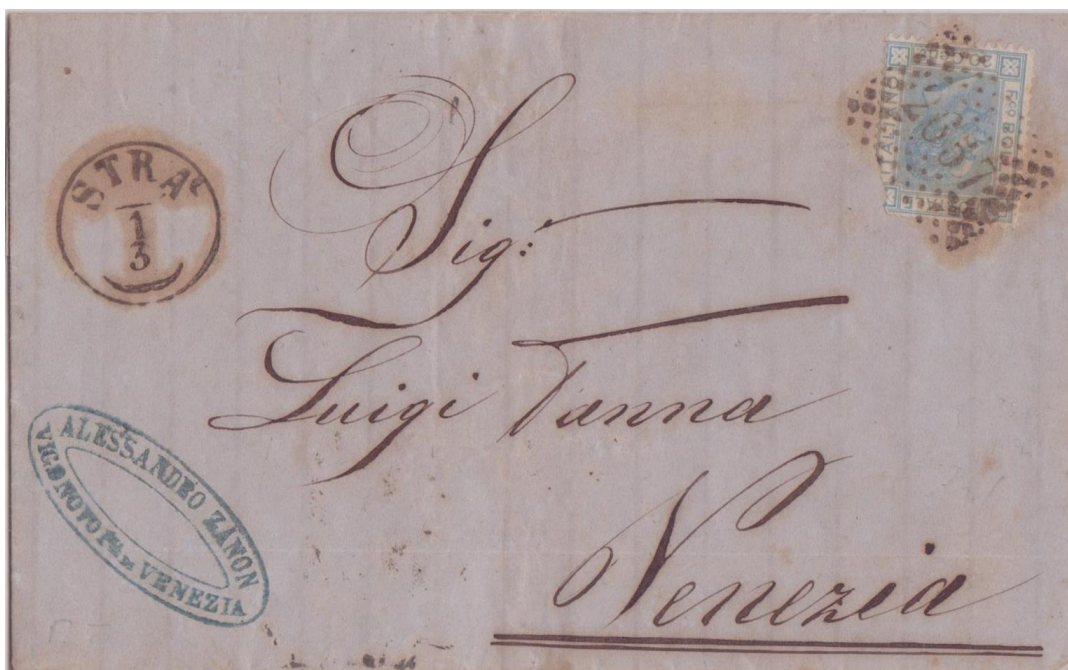 STRA
1
3
Sig:
Luigi Vanna
Venezia
ALESSANDRO ZANON
VIGONOVO DI VENEZIA
ITALIANO
20 C
BOL
2057